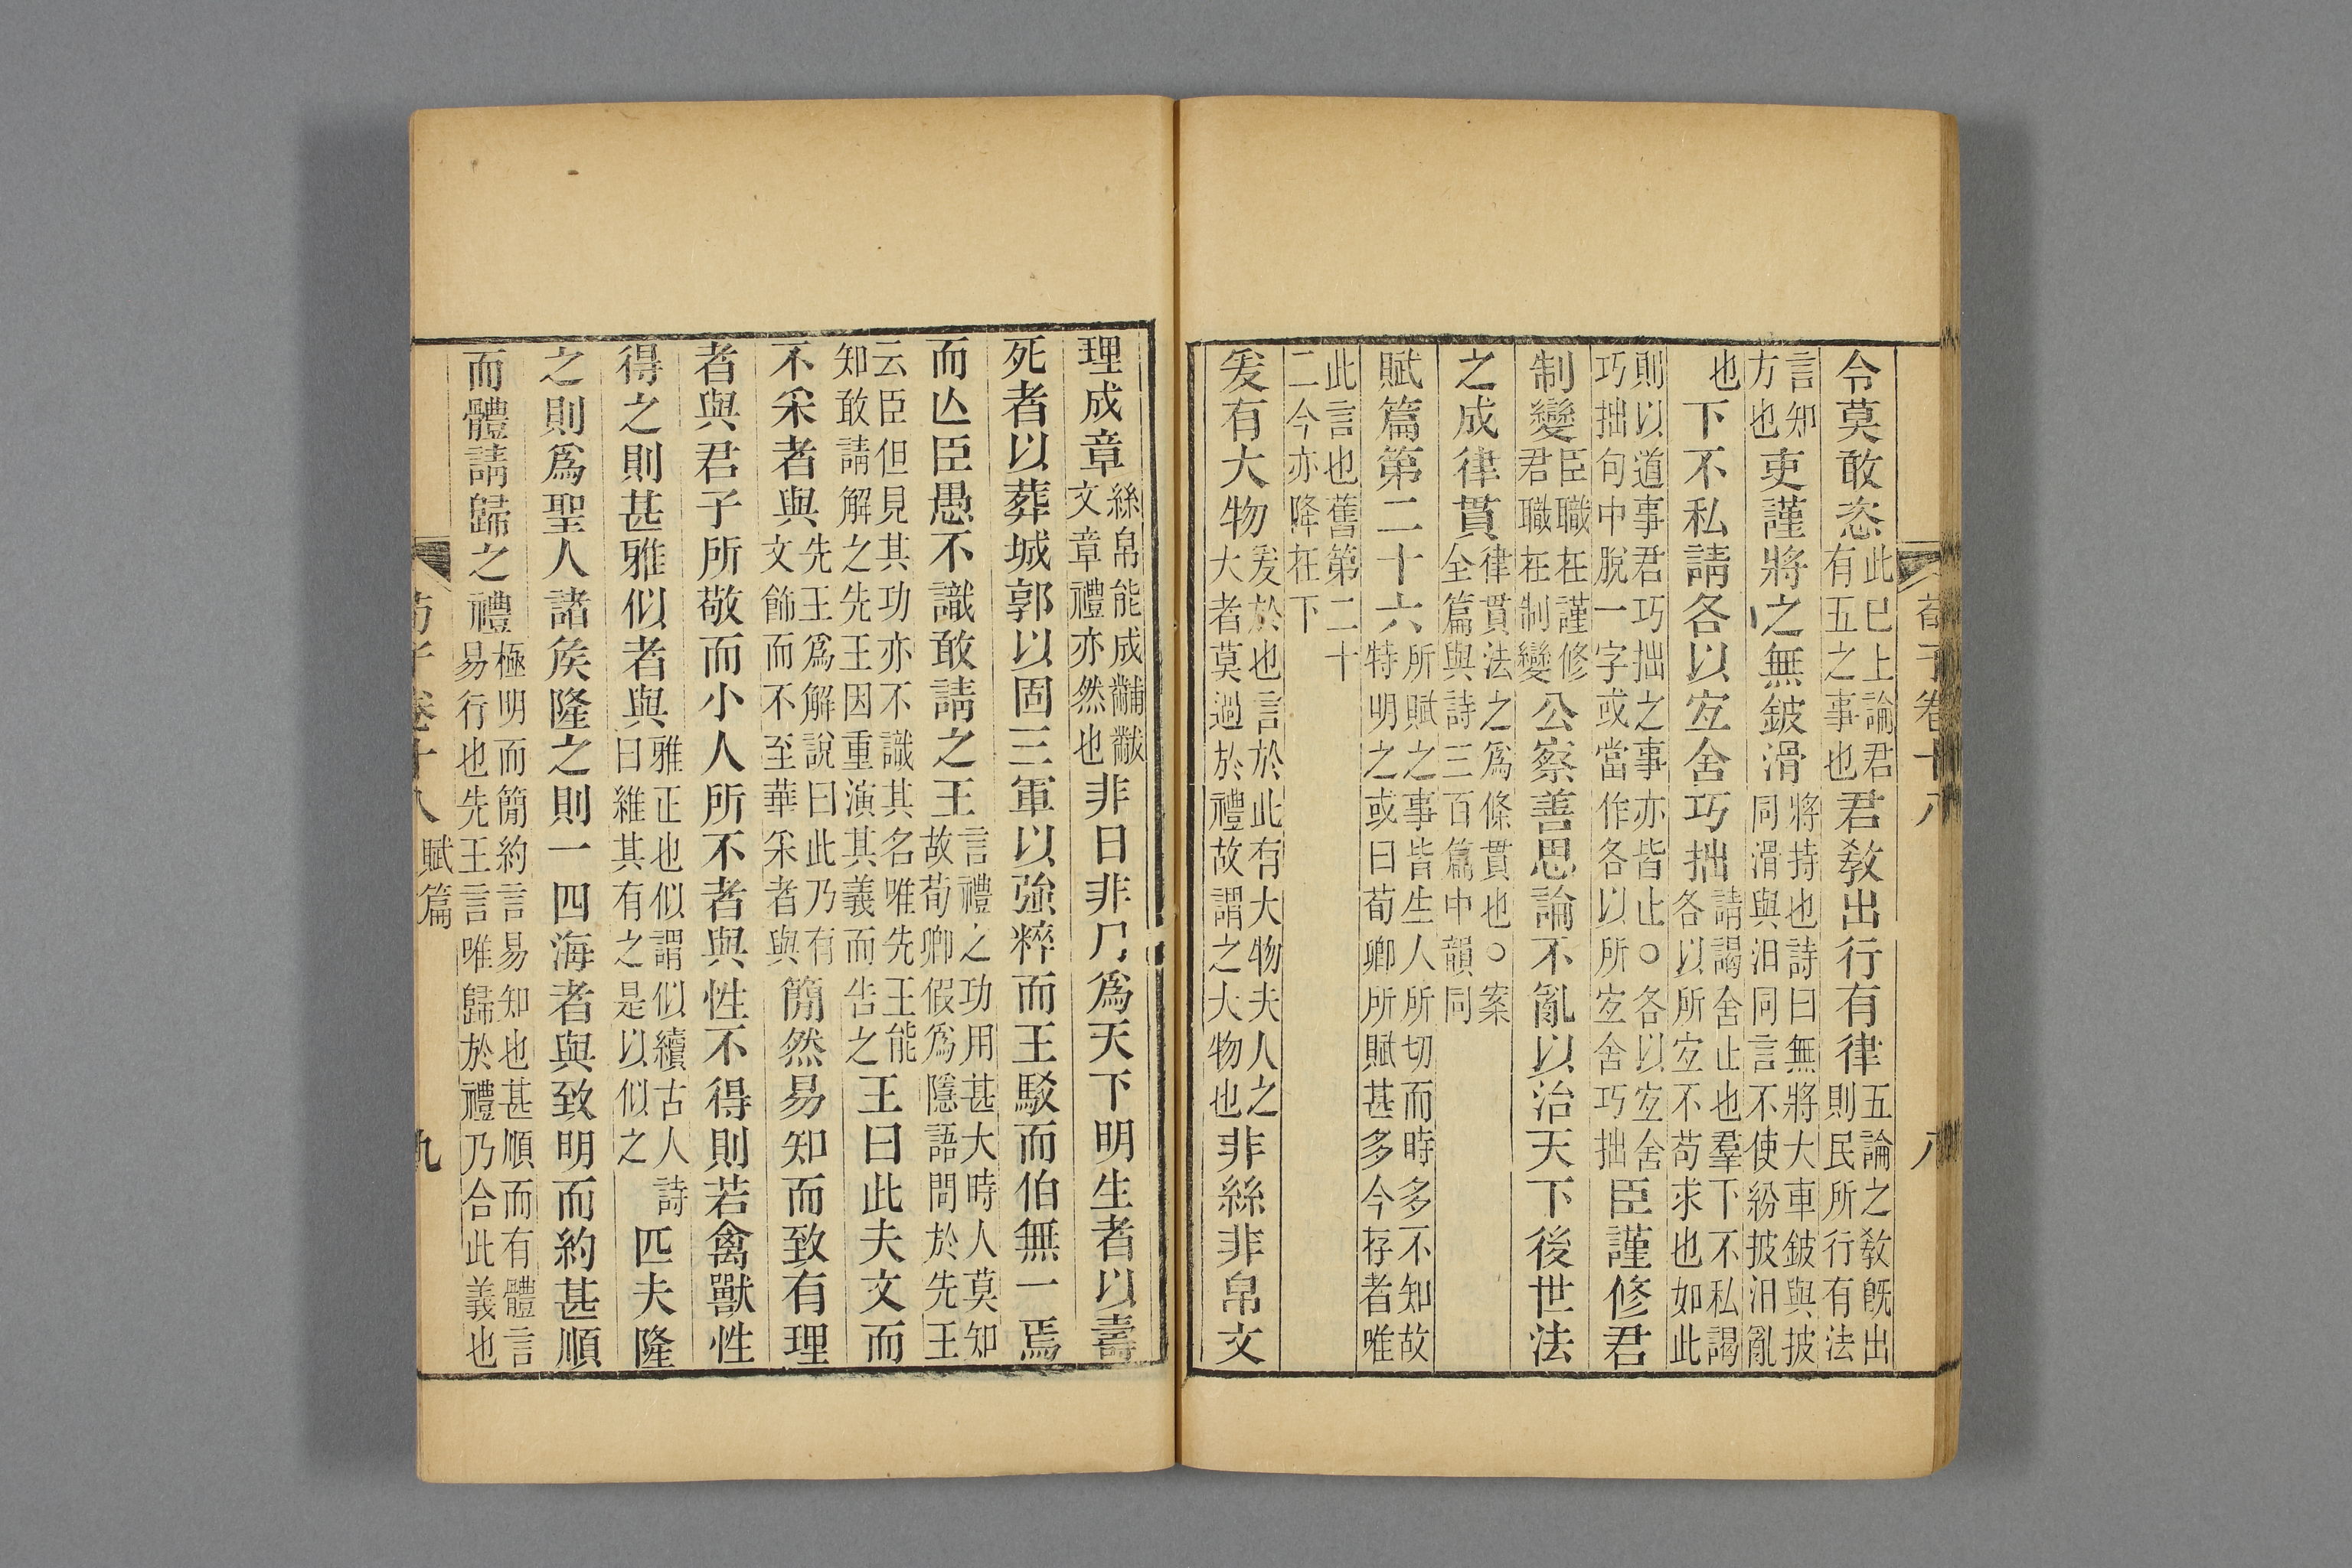 荀子卷十八 八
令莫敢恣此已上論君有五之事也君敎出行有律五論之敎旣出則民所行有法
言知方也吏謹將之無鈹滑將持也詩曰無將大車鈹與披同滑與汨同言不使紛披汨亂
也下不私請各以宐舍巧拙請謁舍止也羣下不私謁各以所宐不苟求也如此
則以道事君巧拙之事亦皆止○各以宐舍巧拙句中脫一字或當作各以所宐舍巧拙臣謹修君
制變臣職在謹修君職在制變公察善思論不亂以治天下後世法
之成律貫律貫法之爲條貫也○案全篇與詩三百篇中韻同
賦篇第二十六所賦之事皆生人所切而時多不知故特明之或曰荀卿所賦甚多今存者唯
此言也舊第二十二今亦降在下
爰有大物爰於也言於此有大物夫人之大者莫過於禮故謂之大物也非絲非帛文
理成章絲帛能成黼黻文章禮亦然也非日非月爲天下明生者以壽
死者以葬城郭以固三軍以強粹而王駁而伯無一焉
而亾臣愚不識敢請之王言禮之功用甚大時人莫知故荀卿假爲隱語問於先王
云臣但見其功亦不識其名唯先王能知敢請解之先王因重演其義而告之王曰此夫文而
不采者與先王爲解說曰此乃有文飾而不至華采者與簡然易知而致有理
者與君子所敬而小人所不者與性不得則若禽獸性
得之則甚雅似者與雅正也似謂似續古人詩曰維其有之是以似之匹夫隆
之則爲聖人諸矦隆之則一四海者與致明而約甚順
而體請歸之禮極明而簡約言易知也甚順而有體言易行也先王言唯歸於禮乃合此義也
荀子卷十八 賦篇 九